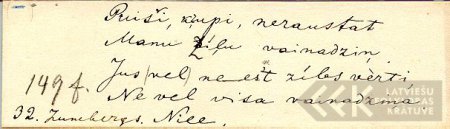 Puiši, ķupi, neraustat
Manu zīļu vainadziņ.
Jus (vel) ne est zīles vērti,
Ne vel visa vainadziņa.
149 f.
32. Zunebergs, Nice.
LATVIEŠU
KRĀTUVE